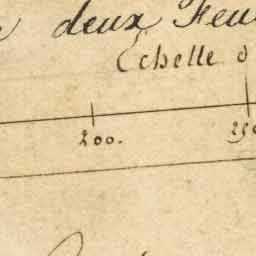 deux Feu
Echelle d
200. 250